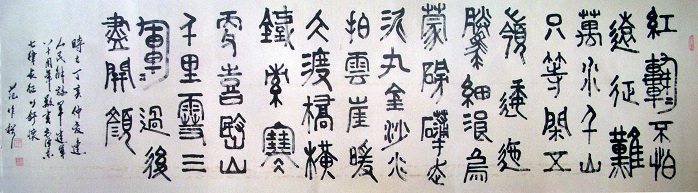 紅軍不怕
遠征難
萬水千山
只等閑五
嶺逶迤
騰細浪烏
蒙磅礴走
泥丸金沙水
拍雲崖暖
大渡橋橫
鐵索寒
更喜岷山
千里雪三
軍過後
盡開顏
丁亥仲夏
人民解放軍建軍
八十周年敬書毛澤東
七律長征